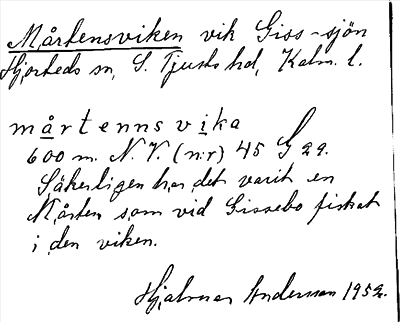 Mårtensviken vik Giss-sjön
Hjorteds sn, S. Tjusts hd, Kalm. l.
mårtennsvika
600 m. N. V. (n:r) 45 G 29.
Säkerligen har det varit en
Mårten som vid Gissebo fiskat
i den viken.
Hjalmar Andersson 1952.